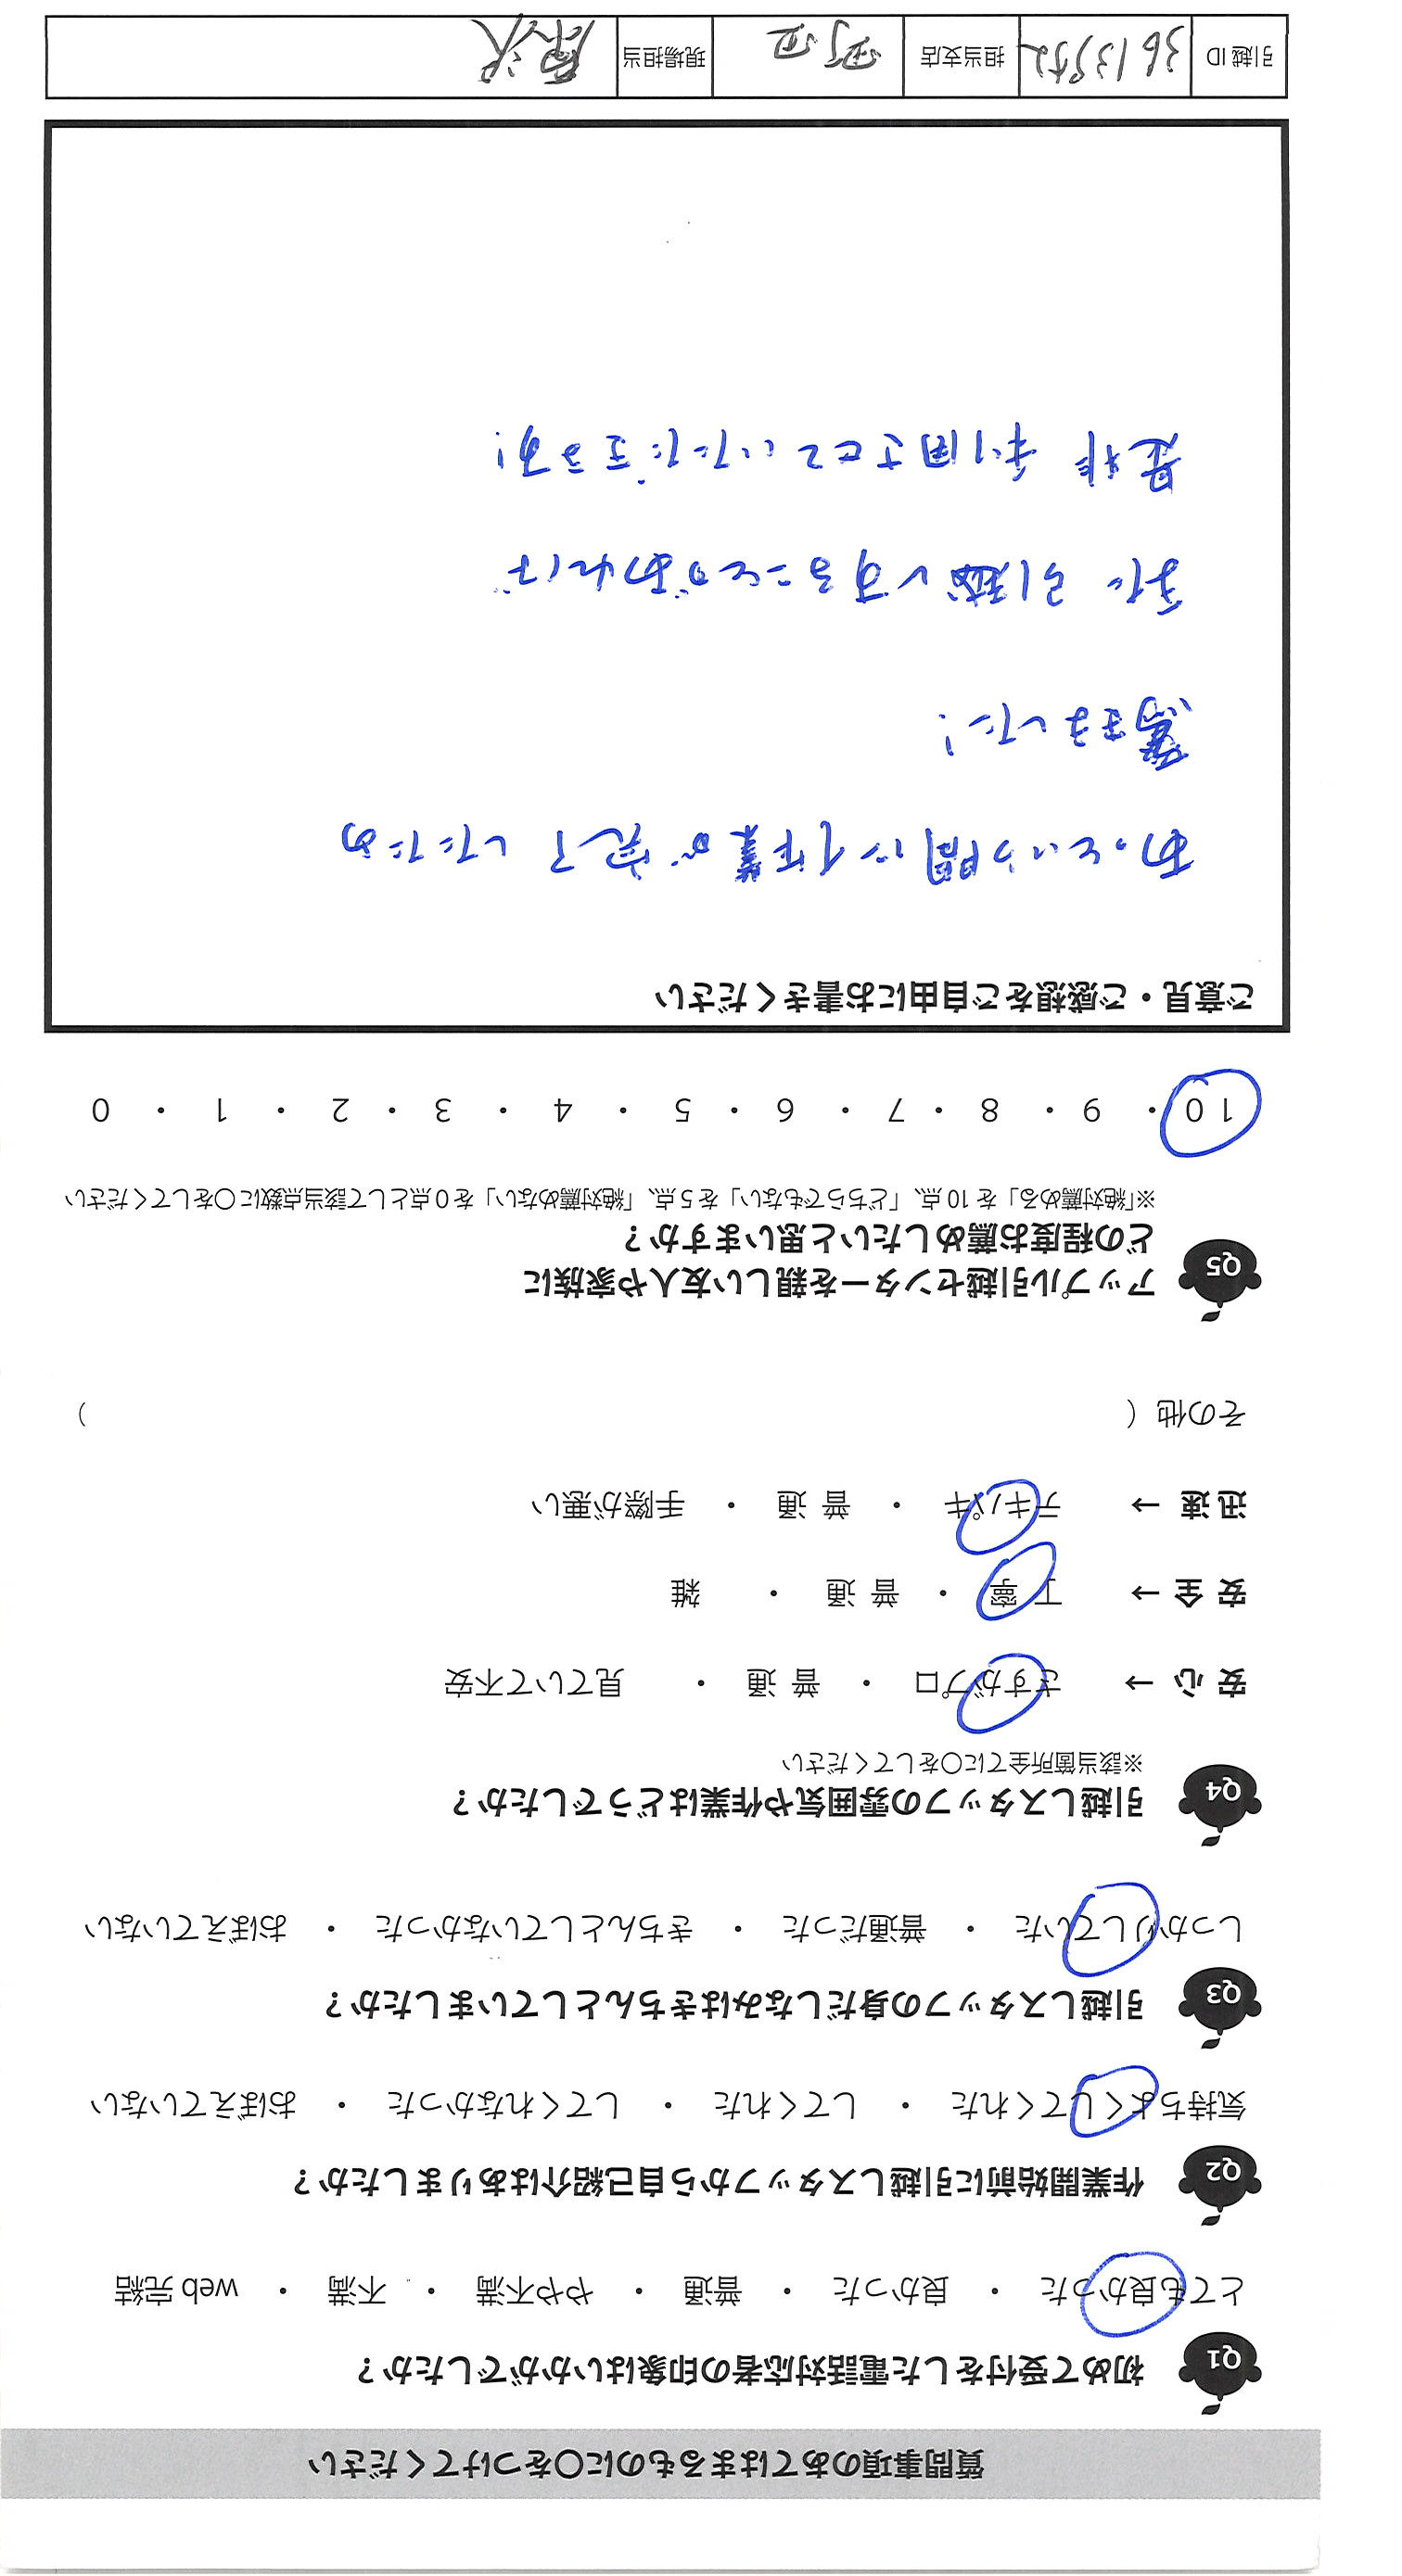 質問事項のあてはまるものに〇をつけてください
Q1 初めて受付をした電話対応者の印象はいかがでしたか？
とても良かった ・ 良かった ・ 普通 ・ やや不満 ・ 不満 ・ web 完結
Q2 作業開始前に引越しスタッフから自己紹介はありましたか？
気持ちよくしてくれた ・ してくれた ・ してくれなかった ・ おぼえていない
Q3 引越しスタッフの身だしなみはきちんとしていましたか？
しっかりしていた ・ 普通だった ・ きちんとしていなかった ・ おぼえていない
Q4 引越しスタッフの雰囲気や作業はどうでしたか？
※該当箇所全てに〇をしてください
安 心 → さすがプロ ・ 普 通 ・ 見ていて不安
安 全 → 丁 寧 ・ 普 通 ・ 雑
迅 速 → テキパキ ・ 普 通 ・ 手際が悪い
その他（ ）
Q5 アップル引越センターを親しい友人や家族に
どの程度お薦めしたいと思いますか？
※「絶対薦める」を 10 点、「どちらでもない」を 5 点、「絶対薦めない」を 0 点として該当点数に〇をしてください
10 ・ 9 ・ 8 ・ 7 ・ 6 ・ 5 ・ 4 ・ 3 ・ 2 ・ 1 ・ 0
ご意見・ご感想をご自由にお書きください
あっという間に作業が完了したため
驚きました！
また引越しすることがあれば
是非利用させていただきます！
引越 ID 担当支店 町田 現場担当